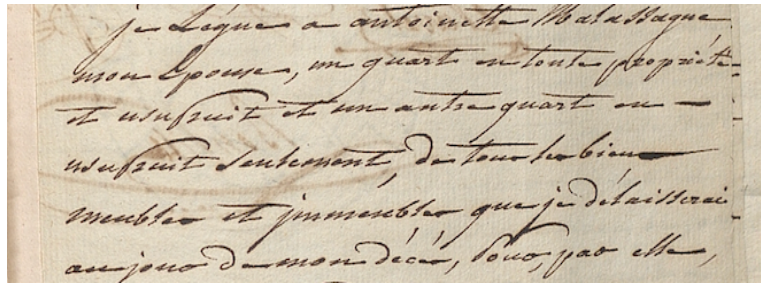 je Legue a antoinette Malassagne
mon Epouse, un quart en toute propriété
et usufruit et un autre quart en
usufruit Seulement, de tous les biens
meubles et jmmeubles que je délaisserai
au jour de mon décès, pour, par elle,